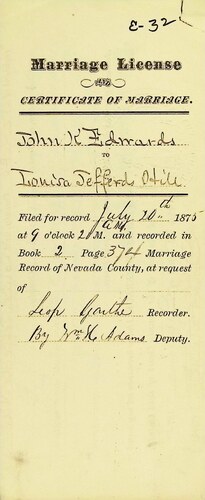 E-32
Marriage License
AND
CERTIFICATE OF MARRIAGE.
John K Edwards
TO
Louisa Jefferds Hill
Filed for record July 20th 1875
at 9 o'clock A.M. and recorded in
Book 2 Page 374 Marriage
Record of Nevada County, at request
of
Recorder.
By Wm H. Adams Deputy.